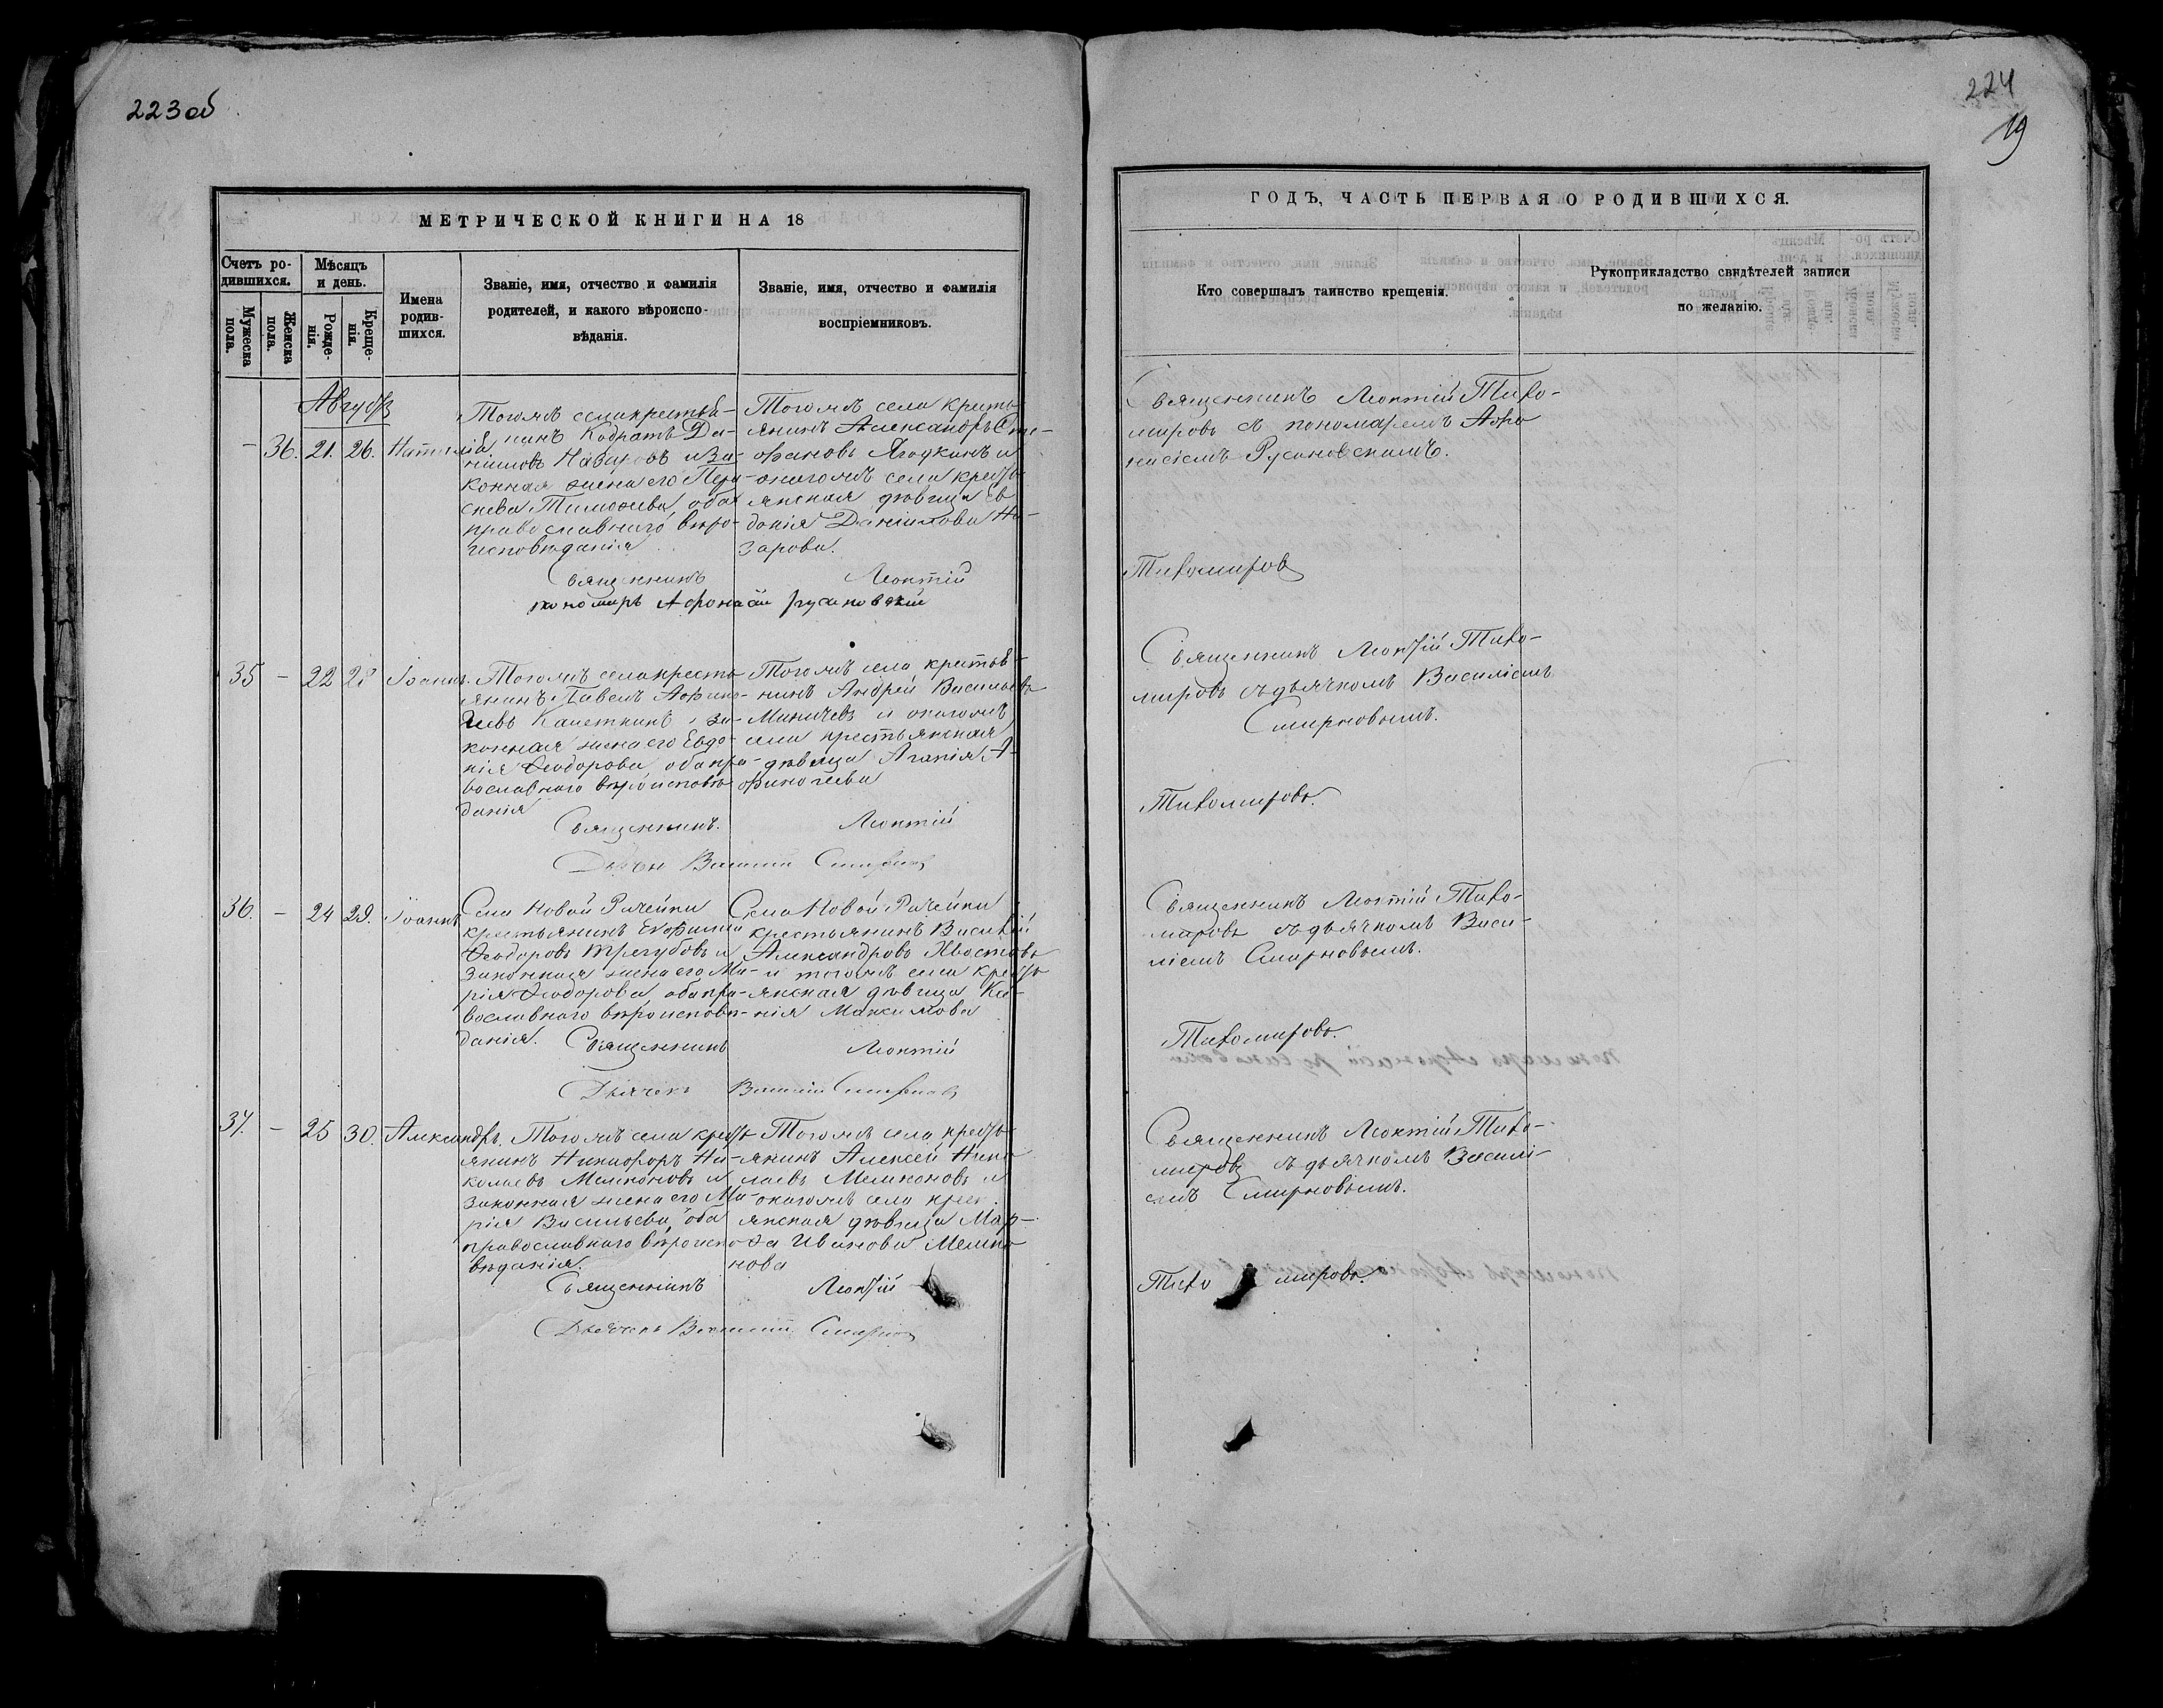 223об
МЕТРИЧЕСКОЙ КНИГИ НА 18
Счетъ ро-
дившихся.
Мужеска
пола.
Женска
пола.
Мѣсяцъ
и день.
Рожде-
нія.
Креще-
нія.
Имена
родив-
шихся.
Званіе, имя, отчество и фамилія
родителей, и какого вѣроиспо-
вѣданія.
Званіе, имя, отчество и фамилія
воспріемниковъ.
Августъ
- 36. 21. 26. Наталія
Тогожъ села крестья-
нинъ Кодратъ Да-
ніиловъ Назаровъ и за-
конная жена его Пара-
скева Тимоѳеева, оба
православнаго вѣро-
исповѣданія
Тогожъ села кресть-
янинъ Александръ Сте-
фановъ Ягодкинъ и
онагожъ села кресть-
янская дѣвица Ев
докія Даніилова На-
зарова.
Священникъ Леонтій
пономарь Афонасій Русановскій
35 - 22 28 Іоаннъ.
Тогожъ села кресть
янинъ Павелъ Афино-
геевъ Капеткинъ и за-
конная жена его Евдо-
кія Ѳеодорова оба пра-
вославнаго вѣроисповѣ
данія
Тогожъ села крестья-
нинъ Андрей Васильевъ
Миничевъ и онагожъ
села крестьянская
дѣвица Агапія А-
финогеева
Священникъ. Леонтій
Дьячекъ Василій Смирновъ
36. - 24 29. Іоаннъ
Села Новой Рачейки
крестьянинъ Евфимій
Ѳеодоровъ Трегубовъ и
законная жена его Ма-
рія Ѳеодорова, оба пра-
вославнаго вѣроисповѣ-
данія.
Села Новой Рачейки
крестьянинъ Василій
Александровъ Хвостовъ
и тогожъ села кресть
янская дѣвица Ксе-
нія Максимова
Священникъ Леонтій
Дьячекъ Василій Смирновъ
37. - 25 30. Александръ.
Тогожъ села кресть
янинъ Никифоръ Ни-
колаевъ Мелконовъ и
законная жена его Ма-
рія Васильева, оба
православнаго вѣроиспо
вѣданія.
Тогожъ села кресть-
янинъ Алексей Нико
лаевъ Мелконовъ и
онагожъ села крест.
янская дѣвица Мар-
ѳа Иванова Мелко
нова
Священникъ Леонтій
Дьячекъ Василій Смирновъ
224
19
ГОДЪ, ЧАСТЬ ПЕРВАЯ О РОДИВШИХСЯ.
Кто совершалъ таинство крещенія.
Рукоприкладство свидѣтелей записи
по желанію.
Священникъ Леонтій Тихо-
мировъ съ пономаремъ Афо
насіемъ Русановскимъ.
Тихомировъ
Священникъ Леонтій Тихо-
мировъ съ дьячкомъ Василіемъ
Смирновымъ.
Тихомировъ.
Священникъ Леонтій Тихо-
мировъ съ дьячкомъ Васи-
ліемъ Смирновымъ.
Тихомировъ.
Священникъ Леонтій Тихо-
мировъ съ дьячкомъ Василі-
емъ Смирновымъ.
Тихомировъ.